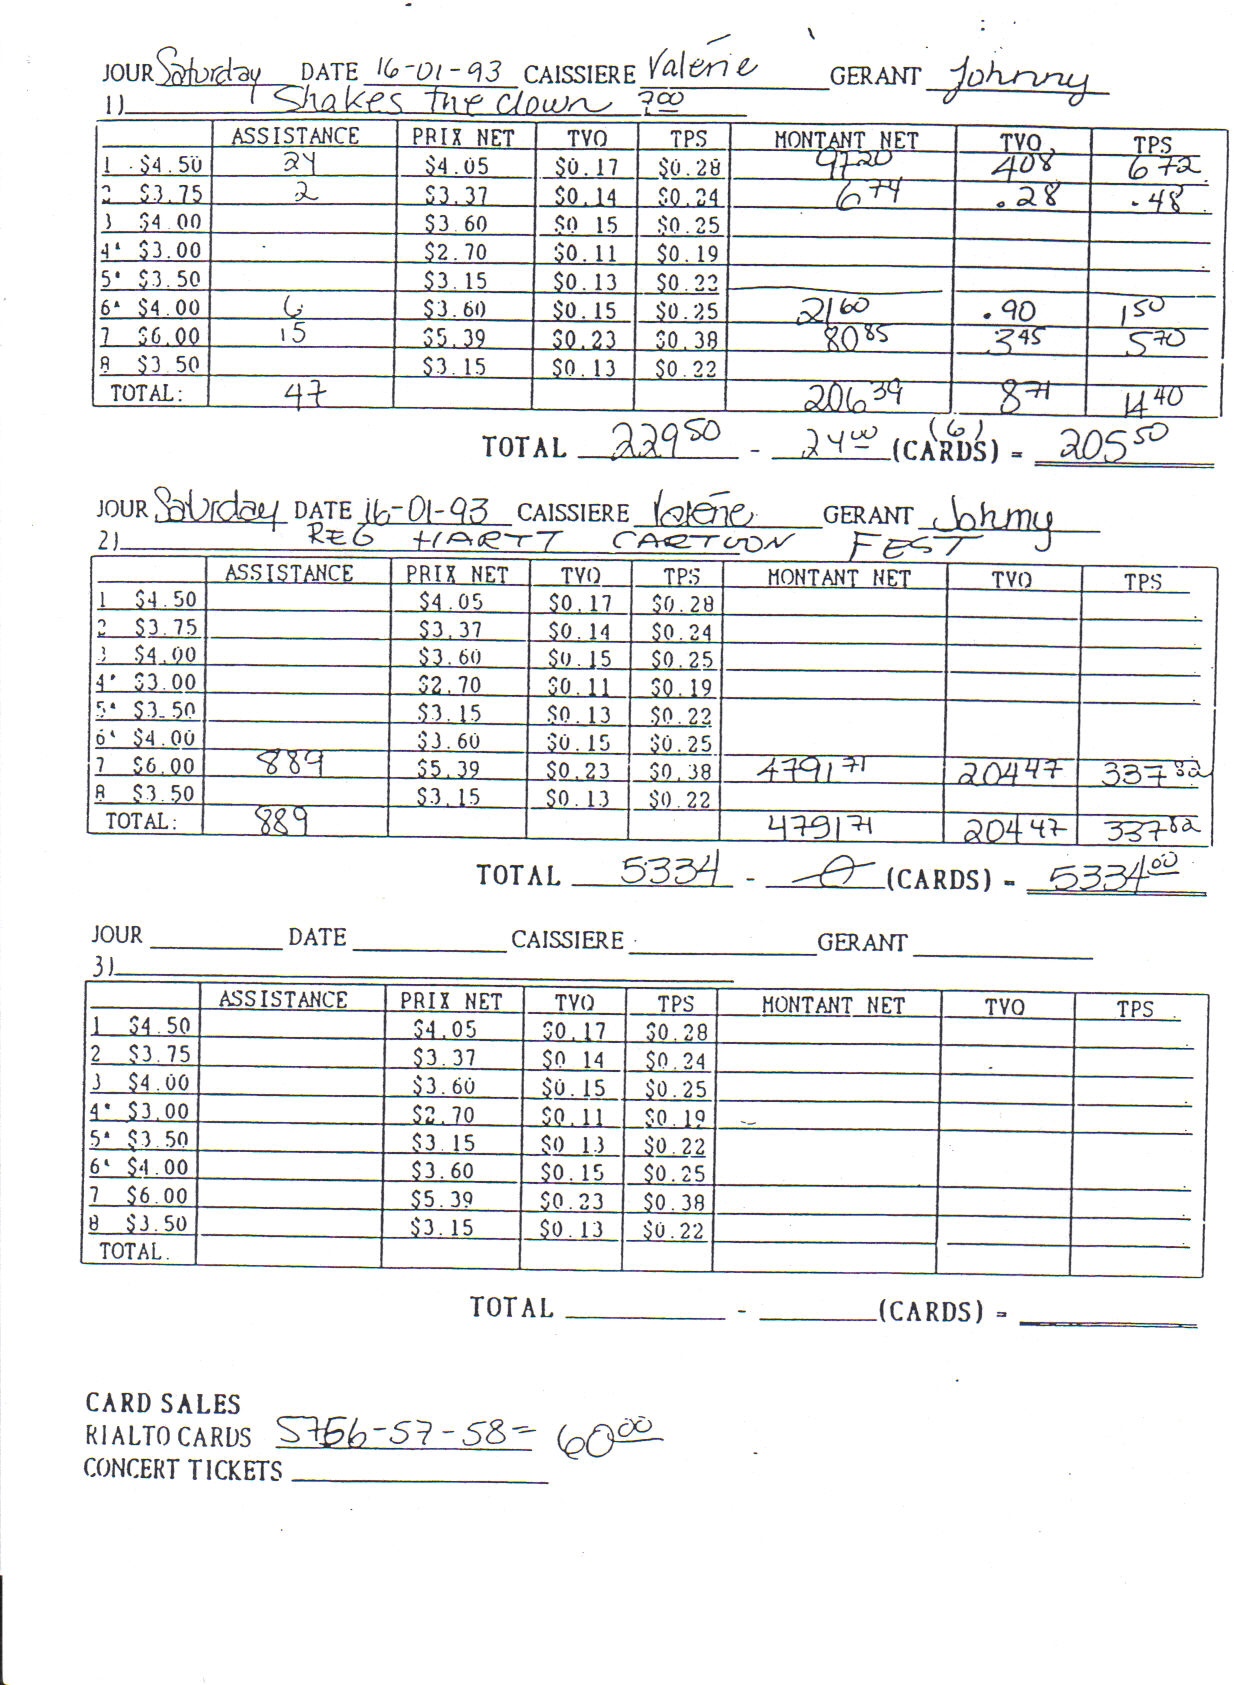 JOUR Saturday DATE 16-01-93 CAISSIERE Valérie GERANT Johnny
1) Shakes the clown 7:00
ASSISTANCE PRIX NET TVQ TPS MONTANT NET TVQ TPS
1 $4.50 24 $4.05 $0.17 $0.28 97.20 4.08 6.72
2 $3.75 2 $3.37 $0.14 $0.24 6.74 .28 .48
3 $4.00 $3.60 $0.15 $0.25
4* $3.00 $2.70 $0.11 $0.19
5* $3.50 $3.15 $0.13 $0.22
6* $4.00 6 $3.60 $0.15 $0.25 21.60 .90 1.50
7 $6.00 15 $5.39 $0.23 $0.38 80.85 3.45 5.70
8 $3.50 $3.15 $0.13 $0.22
TOTAL: 47 206.39 8.71 14.40
TOTAL 229.50 - 24.00 (6) (CARDS) = 205.50
JOUR Saturday DATE 16-01-93 CAISSIERE Valérie GERANT Johnny
2) REG HARTT CARTOON FEST
ASSISTANCE PRIX NET TVQ TPS MONTANT NET TVQ TPS
1 $4.50 $4.05 $0.17 $0.28
2 $3.75 $3.37 $0.14 $0.24
3 $4.00 $3.60 $0.15 $0.25
4* $3.00 $2.70 $0.11 $0.19
5* $3.50 $3.15 $0.13 $0.22
6* $4.00 $3.60 $0.15 $0.25
7 $6.00 889 $5.39 $0.23 $0.38 4791.71 204.47 337.82
8 $3.50 $3.15 $0.13 $0.22
TOTAL: 889 4791.71 204.47 337.82
TOTAL 5334 - 0 (CARDS) = 5334.00
JOUR DATE CAISSIERE GERANT
3)
ASSISTANCE PRIX NET TVQ TPS MONTANT NET TVQ TPS
1 $4.50 $4.05 $0.17 $0.28
2 $3.75 $3.37 $0.14 $0.24
3 $4.00 $3.60 $0.15 $0.25
4* $3.00 $2.70 $0.11 $0.19
5* $3.50 $3.15 $0.13 $0.22
6* $4.00 $3.60 $0.15 $0.25
7 $6.00 $5.39 $0.23 $0.38
8 $3.50 $3.15 $0.13 $0.22
TOTAL.
TOTAL - (CARDS) =
CARD SALES
RIALTO CARDS 5756-57-58= 60.00
CONCERT TICKETS